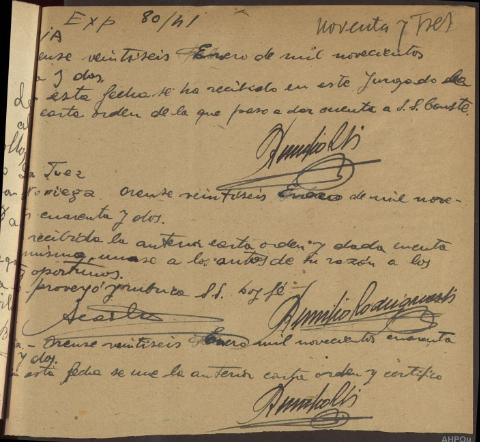 Exp 80/41
noventa y tres
IA
ense veintiseis Enero de mil novecientos
a y dos.
esta fecha se ha recibido en este Juzgado la
carta orden de la que paso a dar cuenta a S.S. Conste.
Juez
Noriega Orense veintiseis Enero de mil nove-
s cuarenta y dos.
recibida la anterior carta orden y dada cuenta
misma, unase a los autos de su razón a los
oportunos.
proveyó y rubrica S.S. doy fé.-
a.- Orense veintiseis Enero mil novecientos cuarenta
y dos.
esta fecha se une la anterior carta orden y certifico
AHPOu